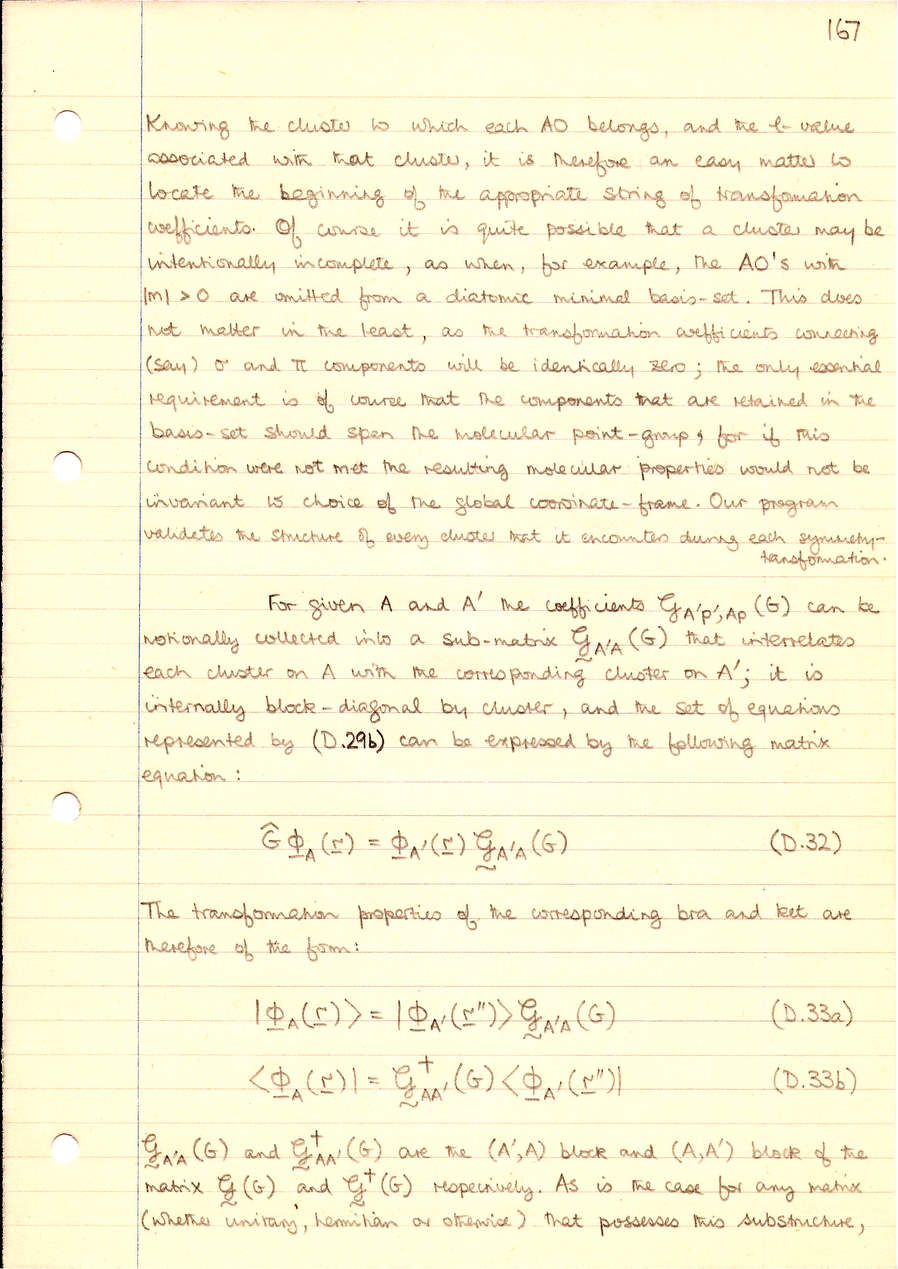 167
Knowing the cluster to which each AO belongs, and the l-value
associated with that cluster, it is therefore an easy matter to
locate the beginning of the appropriate string of transformation
coefficients. Of course it is quite possible that a cluster may be
intentionally incomplete, as when, for example, the AO's with
|m| > 0 are omitted from a diatomic minimal basis-set. This does
not matter in the least, as the transformation coefficients connecting
(say) σ and π components will be identically zero; the only essential
requirement is of course that the components that are retained in the
basis-set should span the molecular point-group; for if this
condition were not met the resulting molecular properties would not be
invariant to choice of the global coordinate-frame. Our program
validates the structure of every cluster that it encounters during each symmetry-
transformation.
For given A and A′ the coefficients 𝒢A′p′,Ap (G) can be
notionally collected into a sub-matrix 𝒢A′A (G) that interrelates
each cluster on A with the corresponding cluster on A′; it is
internally block-diagonal by cluster, and the set of equations
represented by (D.29b) can be expressed by the following matrix
equation:
Ĝ ΦA (r) = ΦA′ (r) 𝒢A′A (G) (D.32)
The transformation properties of the corresponding bra and ket are
therefore of the form:
|ΦA (r)> = |ΦA′ (r″)> 𝒢A′A (G) (D.33a)
<ΦA (r)| = 𝒢†AA′ (G) <ΦA′ (r″)| (D.33b)
𝒢A′A (G) and 𝒢†AA′ (G) are the (A′,A) block and (A,A′) block of the
matrix 𝒢 (G) and 𝒢† (G) respectively. As is the case for any matrix
(whether unitary, hermitian or otherwise) that possesses this substructure,